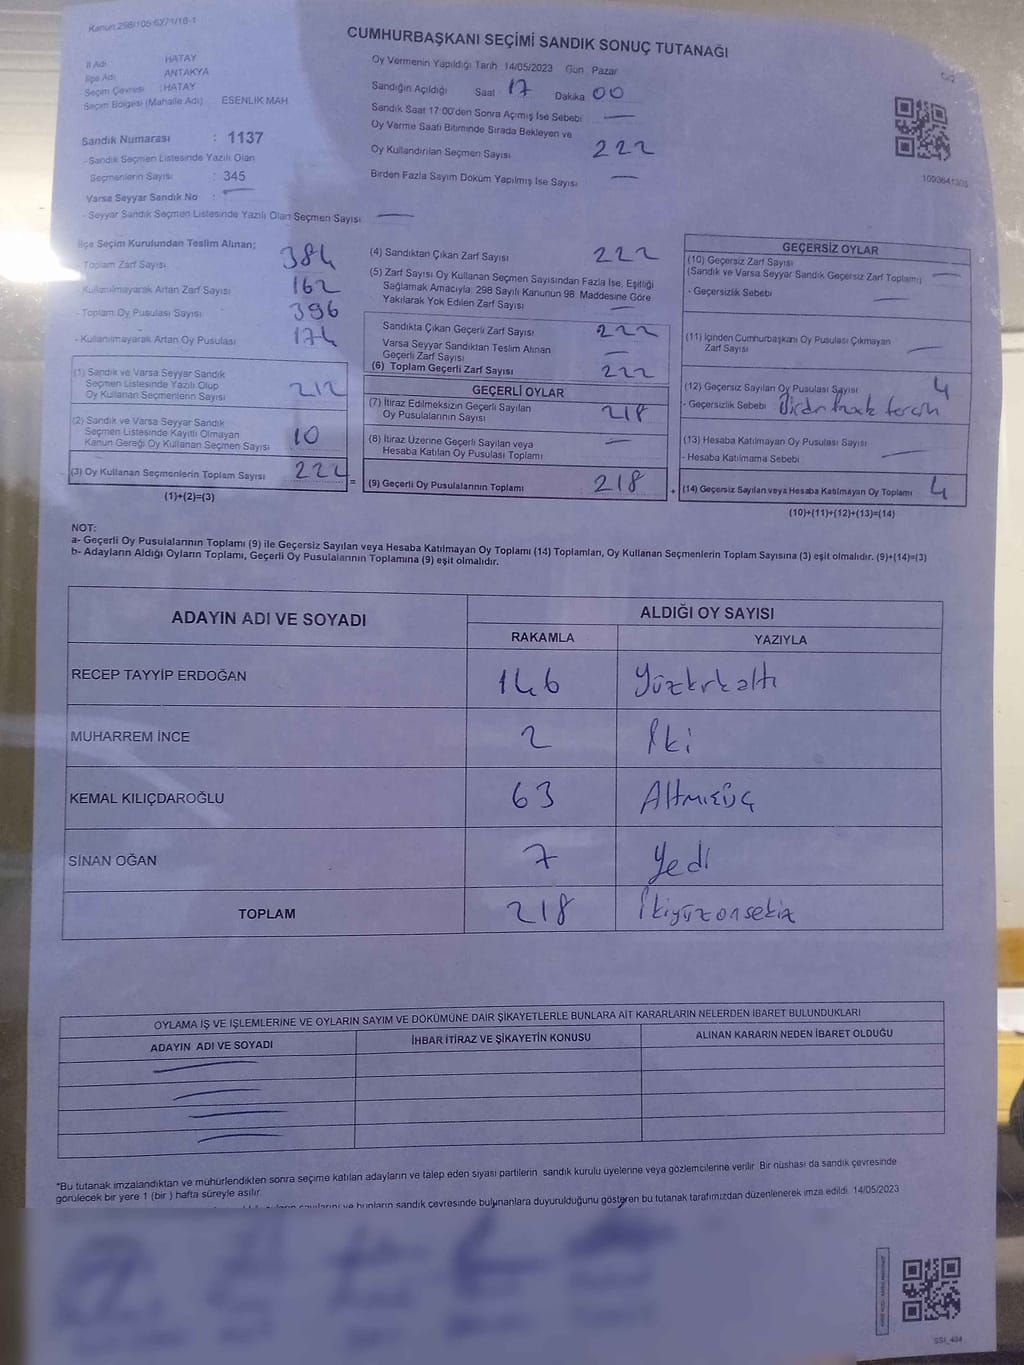 Kanun:298/105-6271/16-1
CUMHURBAŞKANI SEÇİMİ SANDIK SONUÇ TUTANAĞI
İl Adı HATAY
İlçe Adı ANTAKYA
Seçim Çevresi : HATAY
Seçim Bölgesi (Mahalle Adı) : ESENLİK MAH
Sandık Numarası : 1137
- Sandık Seçmen Listesinde Yazılı Olan
Seçmenlerin Sayısı : 345
Varsa Seyyar Sandık No : —
- Seyyar Sandık Seçmen Listesinde Yazılı Olan Seçmen Sayısı —
Oy Vermenin Yapıldığı Tarih 14/05/2023 Gün Pazar
Sandığın Açıldığı Saat 17 Dakika 00
Sandık Saat 17:00'den Sonra Açımış İse Sebebi —
Oy Verme Saati Bitiminde Sırada Bekleyen ve
Oy Kullandırılan Seçmen Sayısı 222
Birden Fazla Sayım Döküm Yapılmış İse Sayısı —
1093641305
İlçe Seçim Kurulundan Teslim Alınan;
- Toplam Zarf Sayısı 384
- Kullanılmayarak Artan Zarf Sayısı 162
- Toplam Oy Pusulası Sayısı 396
- Kullanılmayarak Artan Oy Pusulası 174
(1) Sandık ve Varsa Seyyar Sandık
Seçmen Listesinde Yazılı Olup
Oy Kullanan Seçmenlerin Sayısı 212
(2) Sandık ve Varsa Seyyar Sandık
Seçmen Listesinde Kayıtlı Olmayan
Kanun Gereği Oy Kullanan Seçmen Sayısı 10
(3) Oy Kullanan Seçmenlerin Toplam Sayısı 222
(1)+(2)=(3)
(4) Sandıktan Çıkan Zarf Sayısı 222
(5) Zarf Sayısı Oy Kullanan Seçmen Sayısından Fazla İse, Eşitliği
Sağlamak Amacıyla; 298 Sayılı Kanunun 98. Maddesine Göre
Yakılarak Yok Edilen Zarf Sayısı —
Sandıkta Çıkan Geçerli Zarf Sayısı 222
Varsa Seyyar Sandıktan Teslim Alınan
Geçerli Zarf Sayısı —
(6) Toplam Geçerli Zarf Sayısı 222
GEÇERLİ OYLAR
(7) İtiraz Edilmeksizin Geçerli Sayılan
Oy Pusulalarının Sayısı 218
(8) İtiraz Üzerine Geçerli Sayılan veya
Hesaba Katılan Oy Pusulası Toplamı —
= (9) Geçerli Oy Pusulalarının Toplamı 218
GEÇERSİZ OYLAR
(10) Geçersiz Zarf Sayısı
(Sandık ve Varsa Seyyar Sandık Geçersiz Zarf Toplamı) —
- Geçersizlik Sebebi —
(11) İçinden Cumhurbaşkanı Oy Pusulası Çıkmayan
Zarf Sayısı —
(12) Geçersiz Sayılan Oy Pusulası Sayısı 4
- Geçersizlik Sebebi
(13) Hesaba Katılmayan Oy Pusulası Sayısı —
- Hesaba Katılmama Sebebi
+ (14) Geçersiz Sayılan veya Hesaba Katılmayan Oy Toplamı 4
(10)+(11)+(12)+(13)=(14)
NOT:
a- Geçerli Oy Pusulalarının Toplamı (9) ile Geçersiz Sayılan veya Hesaba Katılmayan Oy Toplamı (14) Toplamları, Oy Kullanan Seçmenlerin Toplam Sayısına (3) eşit olmalıdır. (9)+(14)=(3)
b- Adayların Aldığı Oyların Toplamı, Geçerli Oy Pusulalarının Toplamına (9) eşit olmalıdır.
ADAYIN ADI VE SOYADI ALDIĞI OY SAYISI
RAKAMLA YAZIYLA
RECEP TAYYİP ERDOĞAN 146 Yüzkırkaltı
MUHARREM İNCE 2 İki
KEMAL KILIÇDAROĞLU 63 Altmışüç
SİNAN OĞAN 7 Yedi
TOPLAM 218 İkiyüzonsekiz
OYLAMA İŞ VE İŞLEMLERİNE VE OYLARIN SAYIM VE DÖKÜMÜNE DAİR ŞİKAYETLERLE BUNLARA AİT KARARLARIN NELERDEN İBARET BULUNDUKLARI
ADAYIN ADI VE SOYADI İHBAR İTİRAZ VE ŞİKAYETİN KONUSU ALINAN KARARIN NEDEN İBARET OLDUĞU
*Bu tutanak imzalandıktan ve mühürlendikten sonra seçime katılan adayların ve talep eden siyası partilerin sandık kurulu üyelerine veya gözlemcilerine verilir. Bir nüshası da sandık çevresinde
görülecek bir yere 1 (bir ) hafta süreyle asılır.
sandık çevresinde bulunanlara duyurulduğunu gösteren bu tutanak tarafımızdan düzenlenerek imza edildi. 14/05/2023